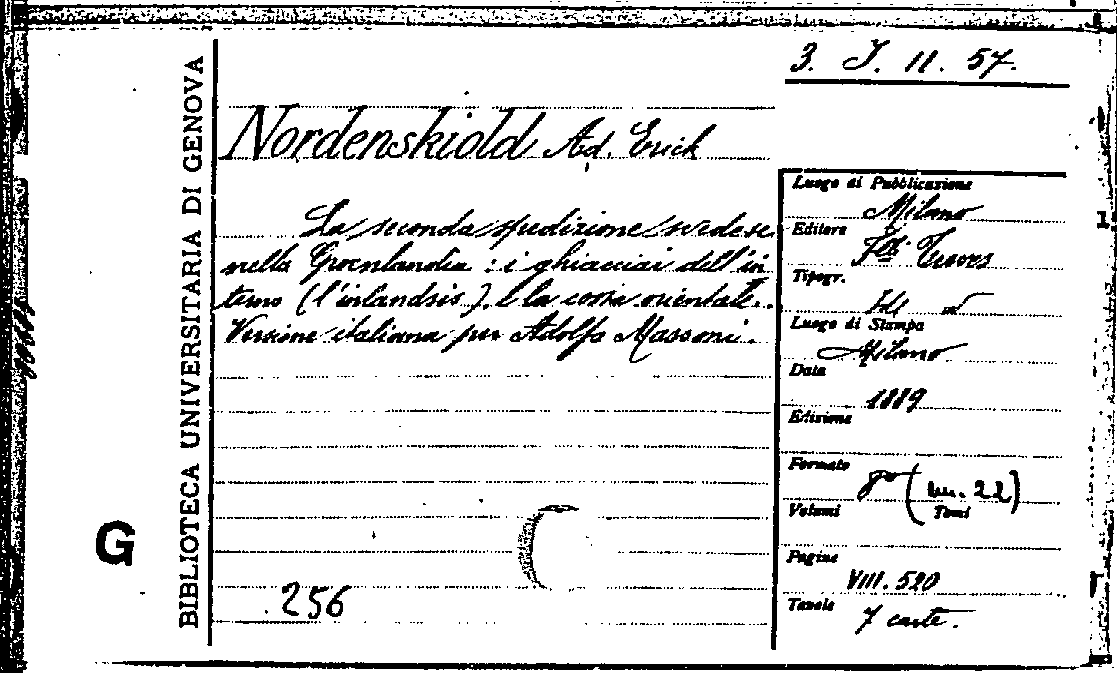 3. J. 11. 57.
BIBLIOTECA UNIVERSITARIA DI GENOVA
G
Nordenskiold Ad. Erick
La seconda spedizione svedese
nella Groenlandia : i ghiacciai dell'in
terno (l'inlandsis). E la costa orientale.
Versione italiana per Adolfo Massoni.
256
Luogo di Pubblicazione
Milano
Editore
F.lli Treves
Tipogr.
Id
Luogo di Stampa
Milano
Data
1889
Edizione
Formato
8° (cm. 22)
Volumi Tomi
Pagine
VIII. 520
Tavole
7 carte.